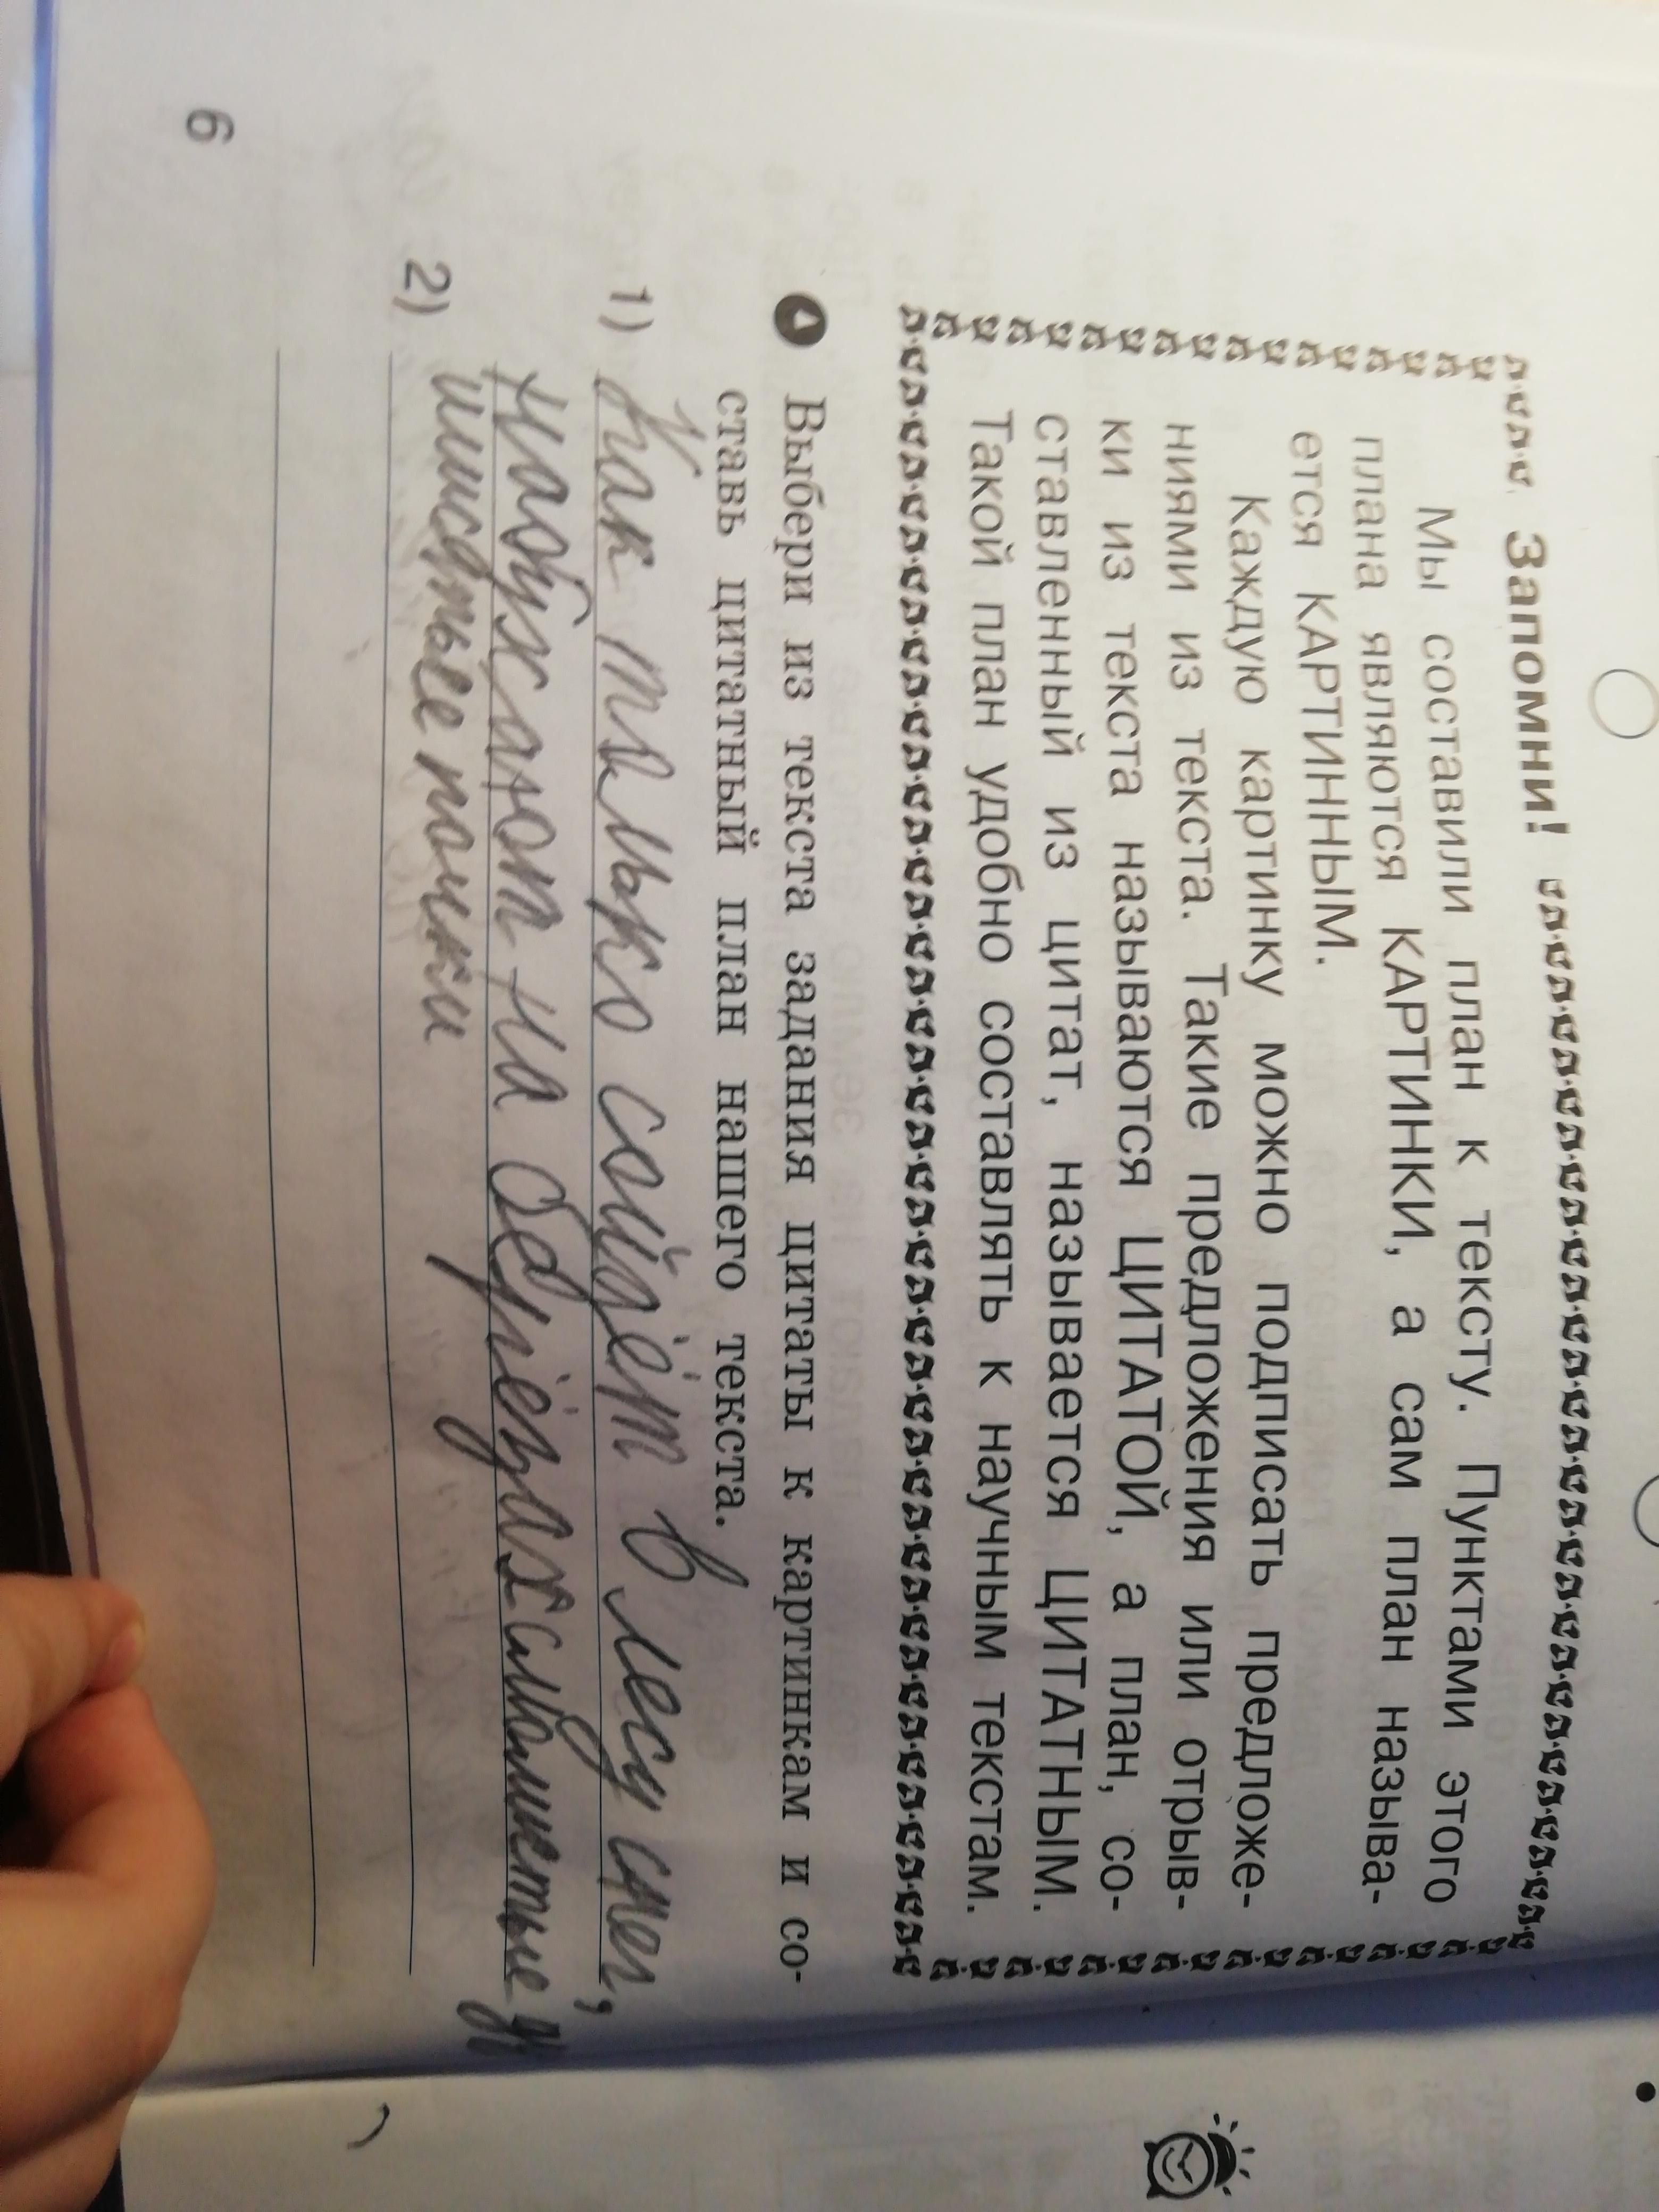 Запомни!
Мы составили план к тексту. Пунктами этого
плана являются КАРТИНКИ, а сам план называ-
ется КАРТИННЫМ.
Каждую картинку можно подписать предложе-
ниями из текста. Такие предложения или отрыв-
ки из текста называются ЦИТАТОЙ, а план, со-
ставленный из цитат, называется ЦИТАТНЫМ.
Такой план удобно составлять к научным текстам.
Выбери из текста задания цитаты к картинкам и со-
ставь цитатный план нашего текста.
1) Как только сойдёт в лесу снег,
набухают на деревьях
почки
2)
6